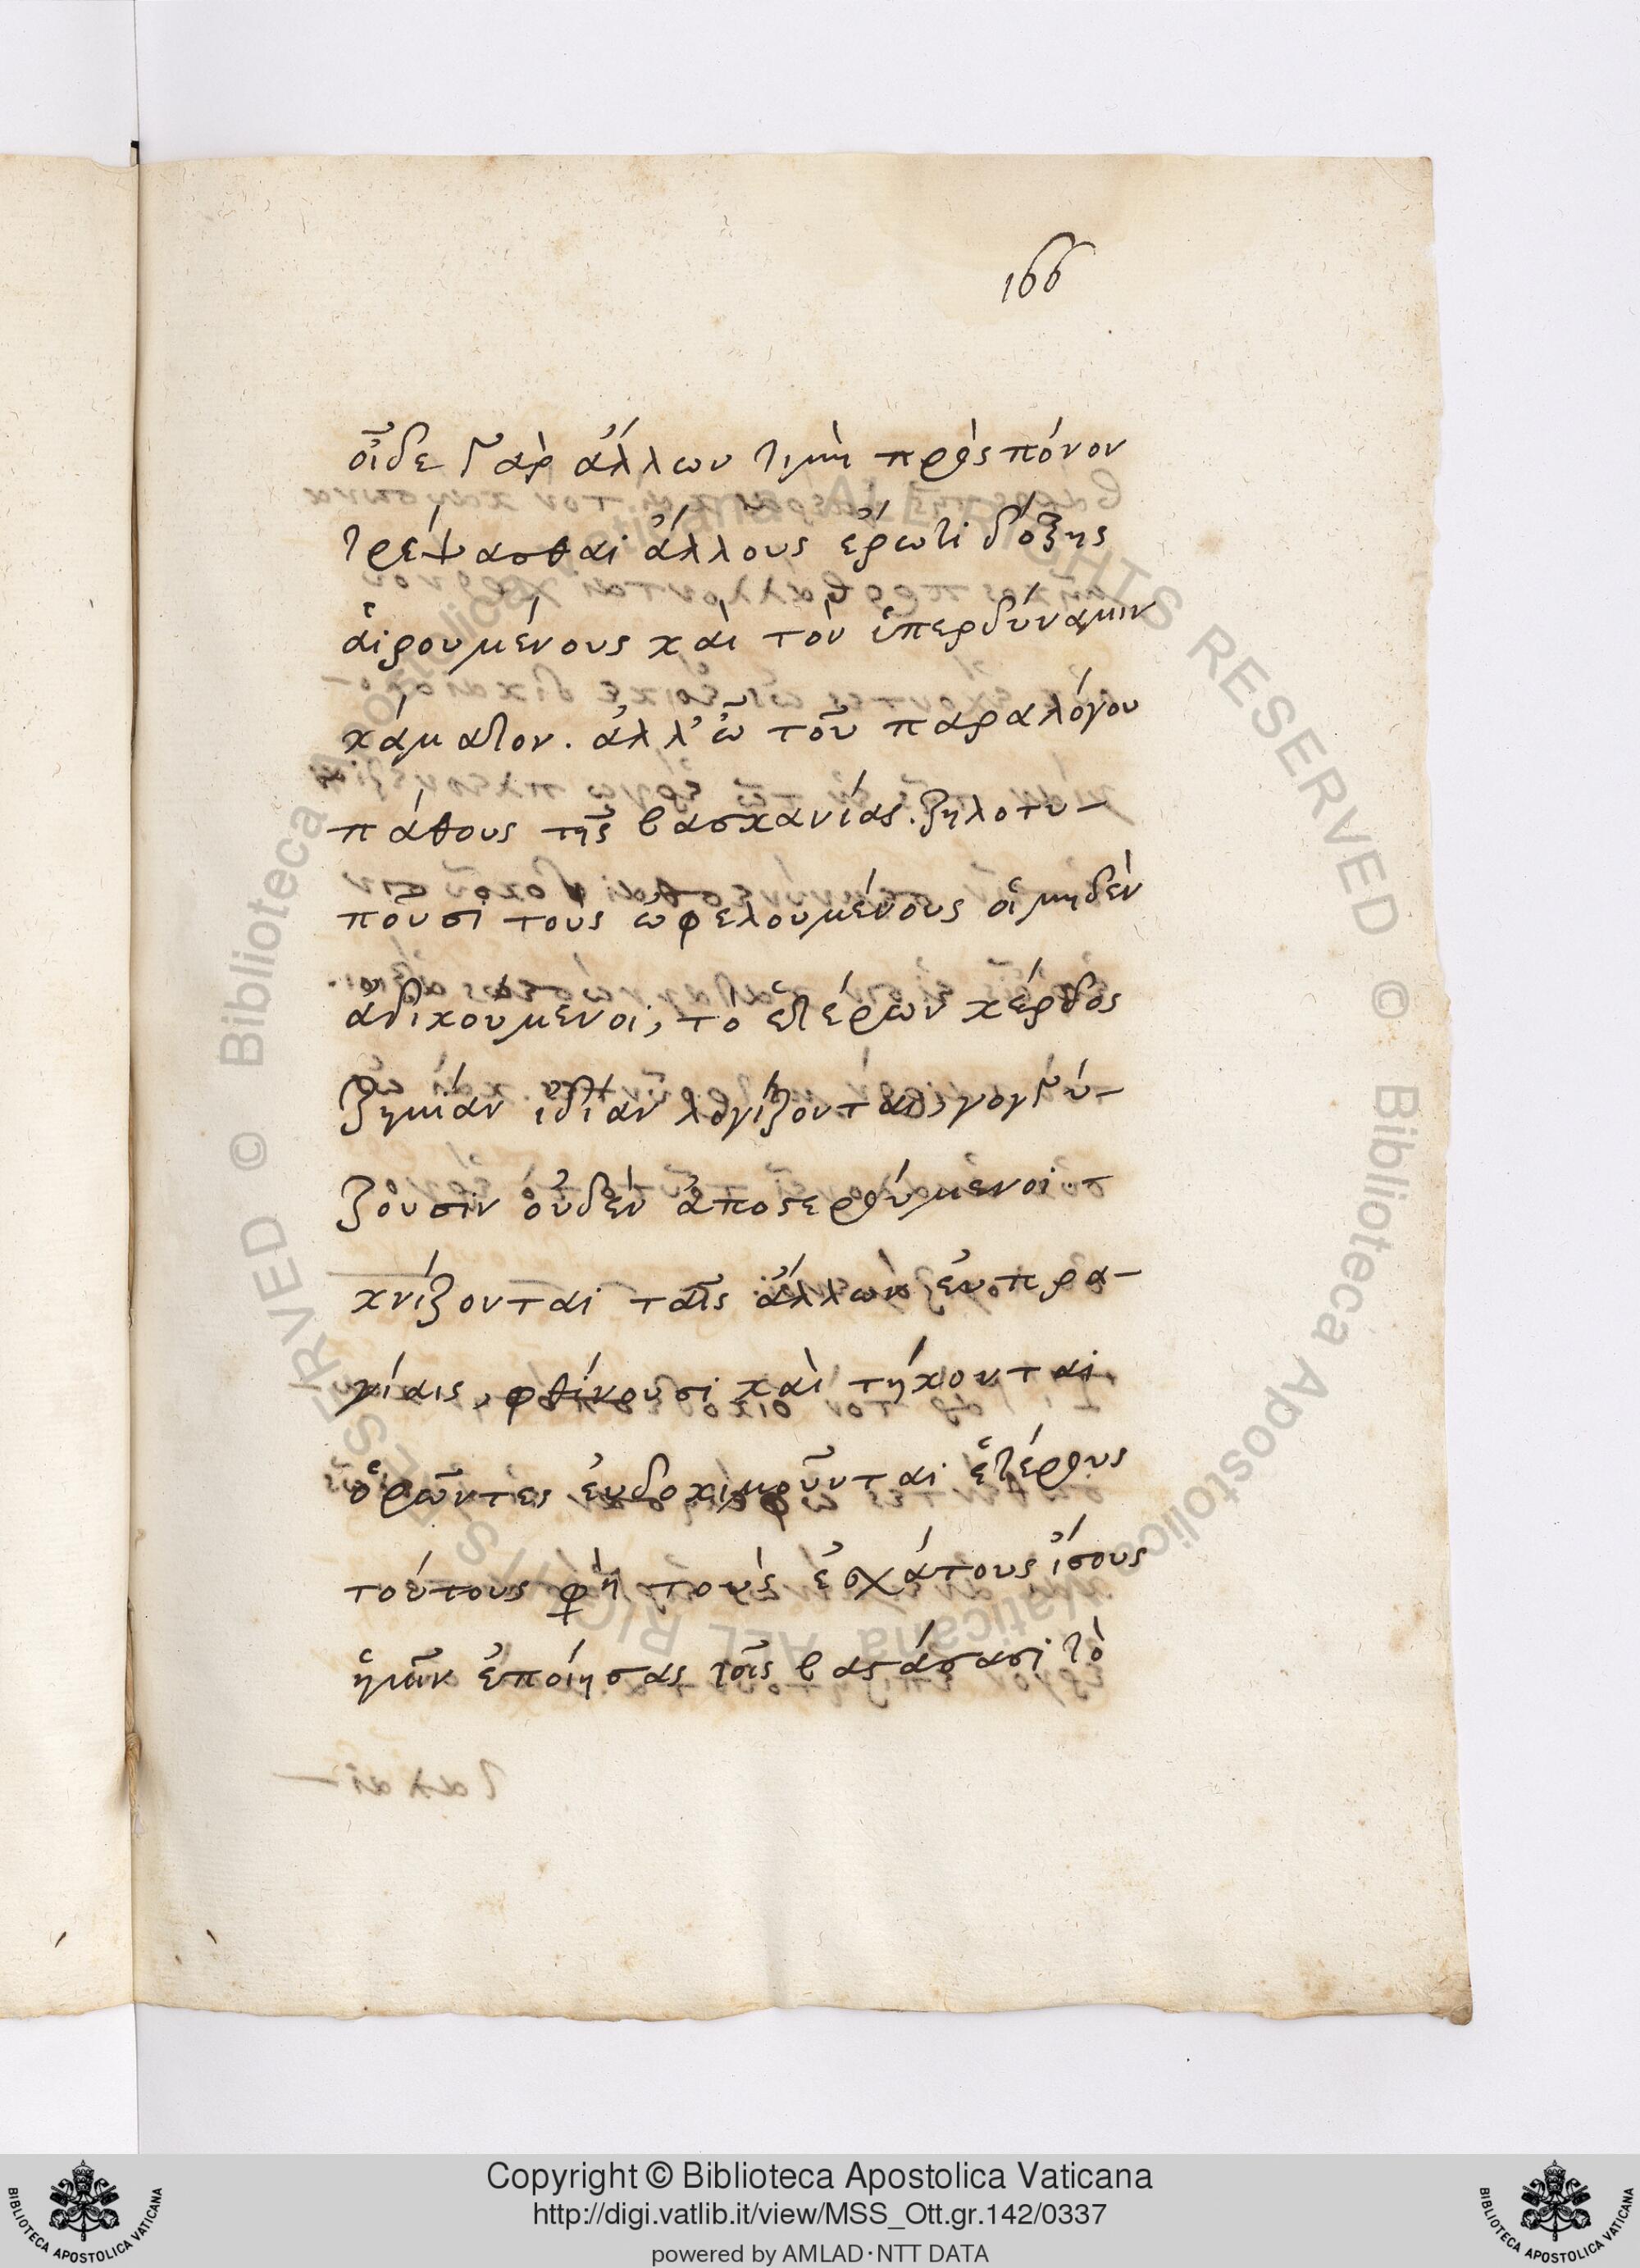 166
οἶδε γὰρ ἄλλων τιμὴ πρὸς πόνον
τρέψασθαι ἄλλους ἔρωτι δόξης
αἱρουμένους καὶ τὸν ὑπερδύναμιν
κάματον. ἀλλ' ὢ τοῦ παραλόγου
πάθους τῆς βασκανίας. ζηλοτυ-
ποῦσι τοὺς ὠφελουμένους οἱ μηδὲν
ἀδικούμενοι, τὸ ἑτέρων κέρδος
ζημίαν ἰδίαν λογίζονται, γογγύ-
ζουσιν οὐδὲν ἀποστερούμενοι.
κνίζονται ταῖς ἄλλων εὐπρα-
γίαις, φθίνουσι καὶ τήκονται
ὁρῶντες εὐδοκιμοῦνται ἑτέρους
τούτους φησὶ τοὺς ἐσχάτους ἴσους
ἡμῖν ἐποίησας τοῖς βαστάσασι τὸ
Copyright © Biblioteca Apostolica Vaticana
http://digi.vatlib.it/view/MSS_Ott.gr.142/0337
powered by AMLAD·NTT DATA
BIBLIOTECA APOSTOLICA VATICANA
BIBLIOTECA APOSTOLICA VATICANA
© Biblioteca Apostolica Vaticana ALL RIGHTS RESERVED © Biblioteca Apostolica Vaticana ALL RIGHTS RESERVED